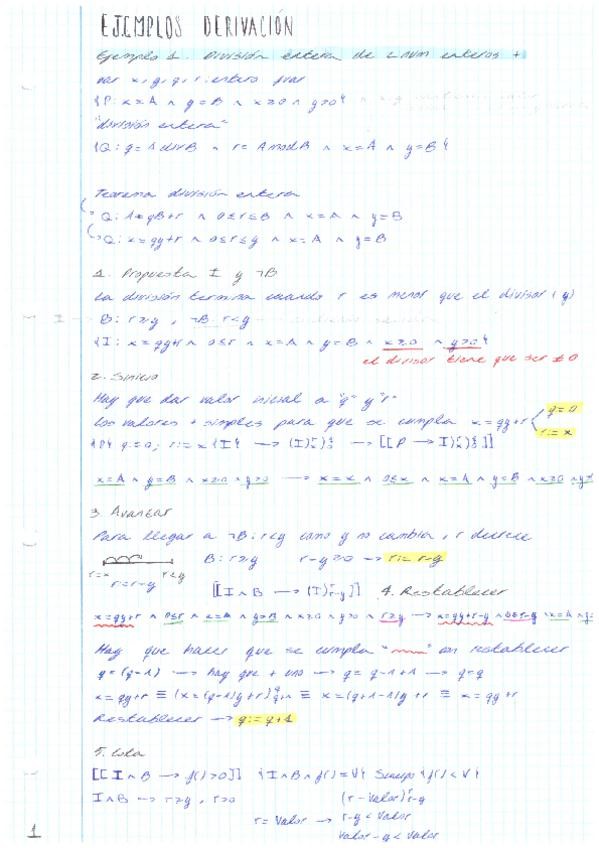 EJEMPLOS DERIVACIÓN
Ejemplo 1. División entera de 2 num enteros +
var x, y, q, r: entero fvar
{P: x=A ∧ y=B ∧ x≥0 ∧ y>0}
"división entera"
{Q: q=A div B ∧ r= A mod B ∧ x=A ∧ y=B}
Teorema división entera
Q: A=qB+r ∧ 0≤r≤B ∧ x=A ∧ y=B
Q: x=qy+r ∧ 0≤r≤y ∧ x=A ∧ y=B
1. Propuesta I y ¬B
La división termina cuando r es menor que el divisor (y)
B: r≥y, ¬B r<y
{I: x=qy+r ∧ 0≤r ∧ x=A ∧ y=B ∧ x≥0 ∧ y>0}
el divisor tiene que ser ≠0
2. Inicio
Hay que dar valor inicial a "q" y "r"
Los valores + simples para que se cumpla x=qy+r
q=0
r:=x
{P} q:=0; r:=x {I}
x=A ∧ y=B ∧ x≥0 ∧ y>0 → x=x ∧ 0≤x ∧ x=A ∧ y=B ∧ x≥0 ∧ y>
3. Avanzar
Para llegar a ¬B: r<y como y no cambia, r decrece
B: r≥y r-y≥0 → r:=r-y
r=x r<y
r=r-y
[[I∧B → (I)ʳr-y]] 4. Restablecer
x=qy+r ∧ 0≤r ∧ x=A ∧ y=B ∧ x≥0 ∧ y>0 ∧ r≥y → x=qy+r-y ∧ 0≤r-y ∧ x=A ∧ y=
Hay que hacer que se cumpla " " en restablecer
q=(q-1) → hay que + uno → q=q-1+1 → q=q
x=qy+r ≡ (x=(q-1)y+r) q q+1 ≡ x=(q+1-1)y+r ≡ x=qy+r
Restablecer → q:=q+1
5. Cota
[[I∧B → f()>0]] {I∧B∧f()=V} Sincp {f()<V}
I∧B → r≥y, r>0 (r-Valor)ʳr-y
r=Valor → r-y<Valor
Valor-y<Valor
1